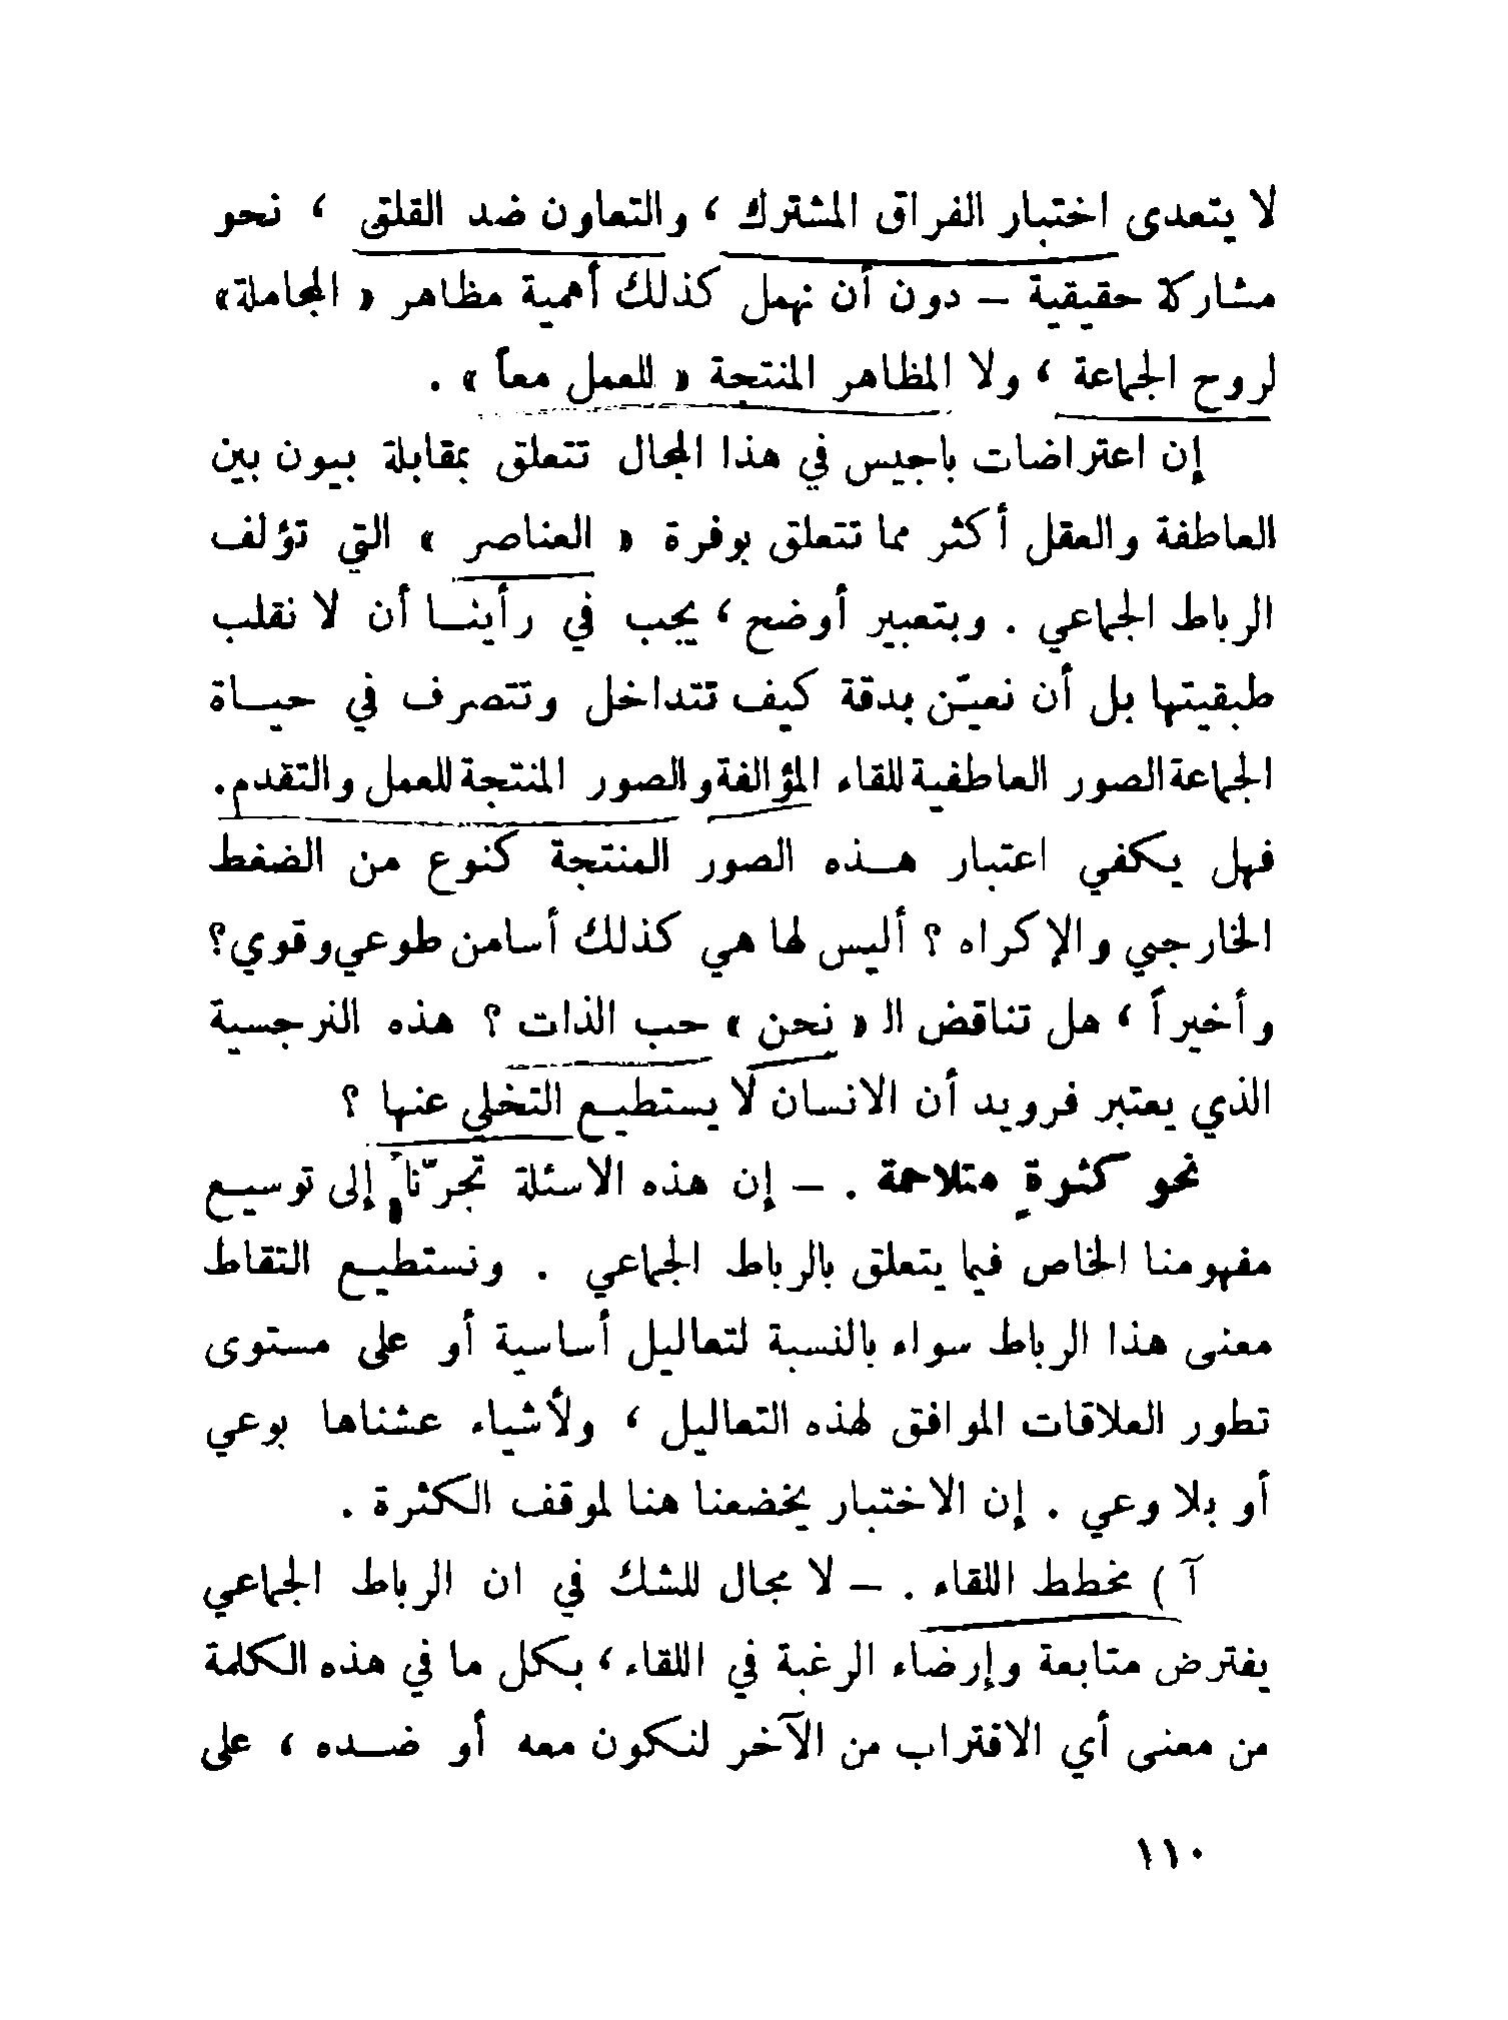 لا يتعدى اختبار الفراق المشترك ، والتعاون ضد القلق ، نحو
مشاركة حقيقية – دون أن نهمل كذلك أهمية مظاهر « المجاملة»
لروح الجماعة ، ولا المظاهر المنتجة « للعمل معاً » .
إن اعتراضات باجيس في هذا المجال تتعلق بمقابلة بيون بين
العاطفة والعقل أكثر مما تتعلق بوفرة « العناصر » التي تؤلف
الرباط الجماعي . وبتعبير أوضح ، يجب في رأينا أن لا نقلب
طبقيتها بل أن نعيّن بدقة كيف تتداخل وتتصرف في حياة
الجماعة الصور العاطفية للقاء المؤالفة والصور المنتجة للعمل والتقدم.
فهل يكفي اعتبار هذه الصور المنتجة كنوع من الضغط
الخارجي والإكراه ؟ أليس لها هي كذلك أسامن طوعي وقوي؟
وأخيراً ، هل تناقض الـ « نحن » حب الذات ؟ هذه النرجسية
الذي يعتبر فرويد أن الانسان لا يستطيع التخلي عنها ؟
نحو كثرةٍ متلاحمة . – إن هذه الاسئلة تجرّنا إلى توسيع
مفهومنا الخاص فيما يتعلق بالرباط الجماعي . ونستطيع التقاط
معنى هذا الرباط سواء بالنسبة لتعاليل أساسية أو على مستوى
تطور العلاقات الموافق لهذه التعاليل ، ولأشياء عشناها بوعي
أو بلا وعي . إن الاختبار يخضعنا هنا لموقف الكثرة .
آ ) مخطط اللقاء . – لا مجال للشك في ان الرباط الجماعي
يفترض متابعة وإرضاء الرغبة في اللقاء ، بكل ما في هذه الكلمة
من معنى أي الاقتراب من الآخر لنكون معه أو ضده ، على
١١٠